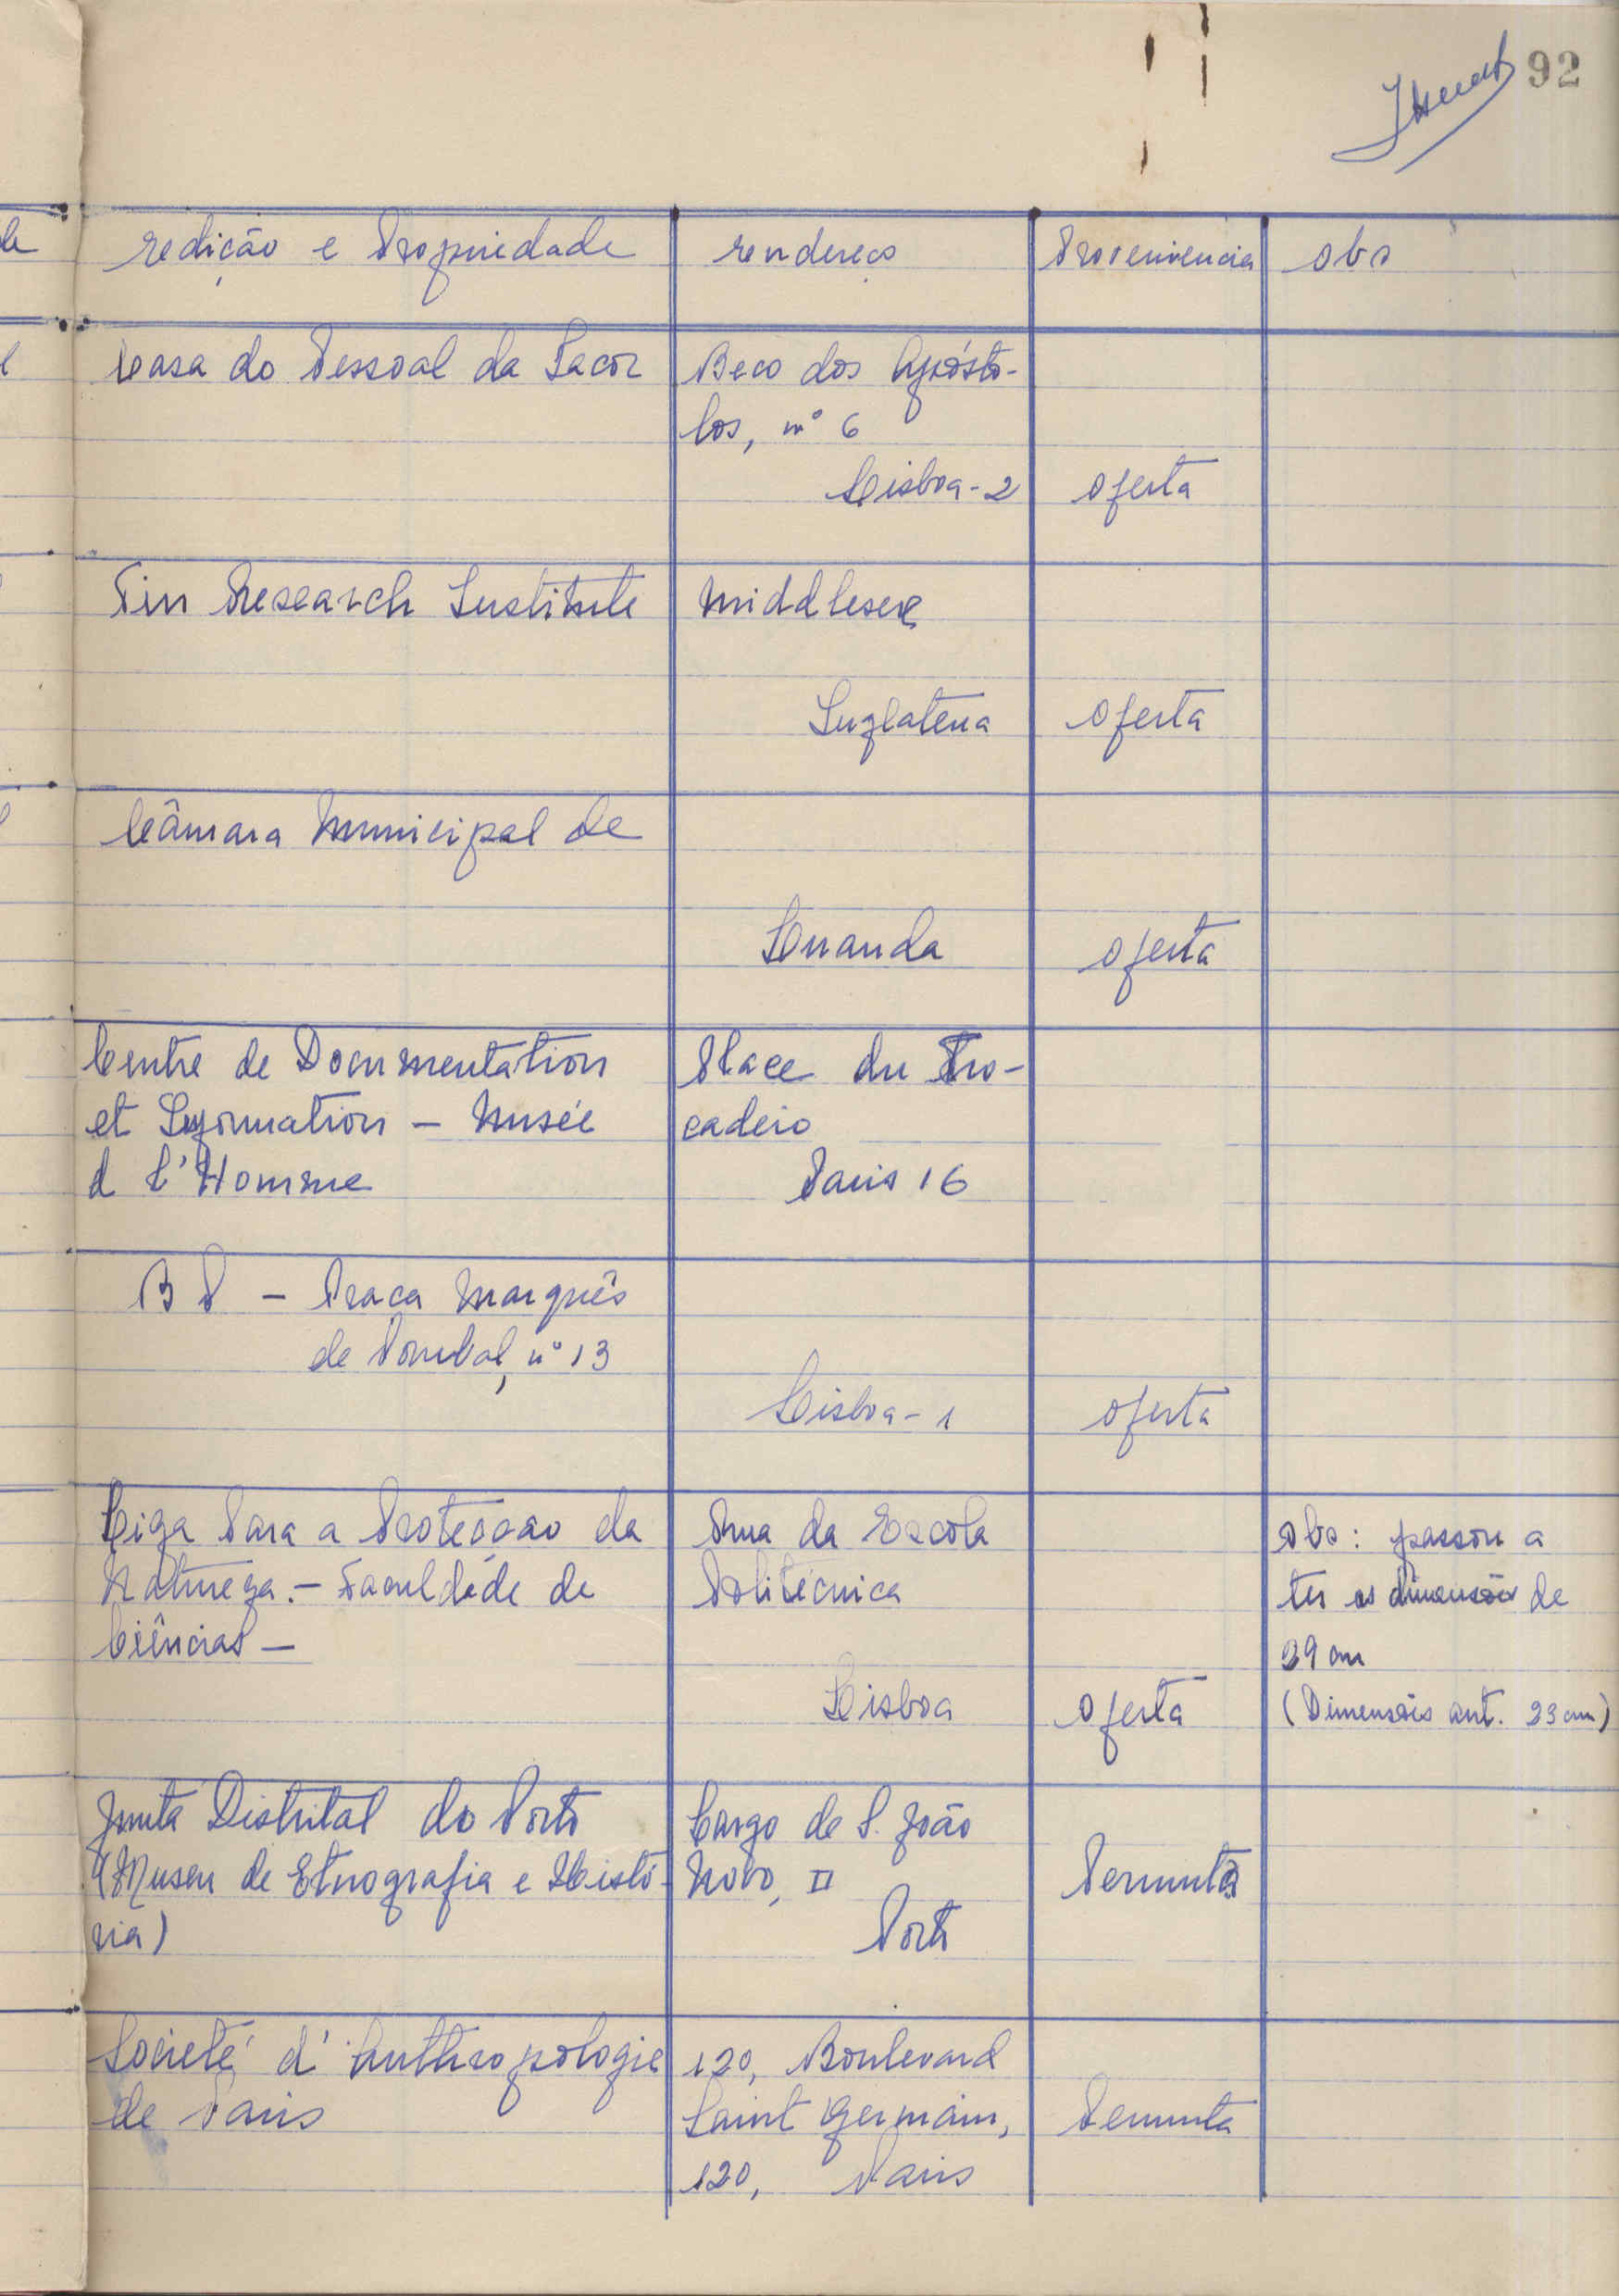 92
edição e Propriedade endereço Proveniencia obs
Casa do Pessoal da Sacor Beco dos Apósto-
los, nº 6
Lisboa-2 oferta
Tin Research Institute Middlesex
Inglaterra oferta
Câmara Municipal de
Luanda oferta
Centre de Documentation Place du Tro-
et Information - Musée cadero
d l'Homme Paris 16
B P - Praça Marquês
de Pombal, nº 13
Lisboa-1 oferta
Liga Para a Protecção da Rua da Escola obs: passou a
Natureza. - Faculdade de Politécnica ter as dimensões de
Ciências - 29 cm
Lisboa oferta (Dimensões ant. 23 cm)
Junta Distrital do Porto Largo de S. João
(Museu de Etnografia e Histó- Novo, II Permuta
ria) Porto
Societé d'Anthropologie 120, Boulevard
de Paris Saint Germain, Permuta
120, Paris